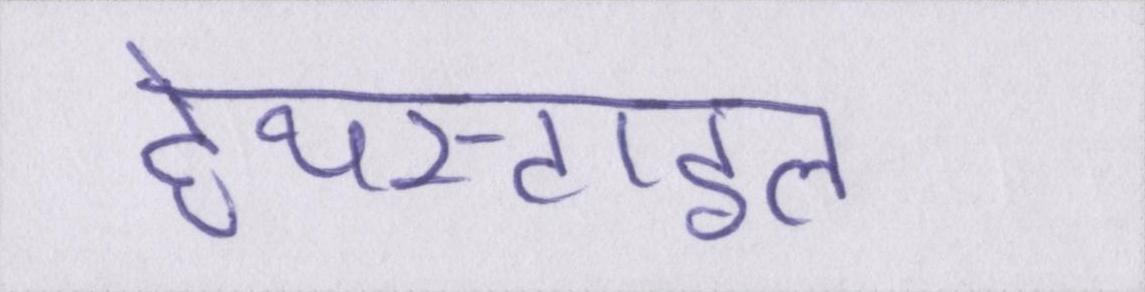 हेयस्टाइल